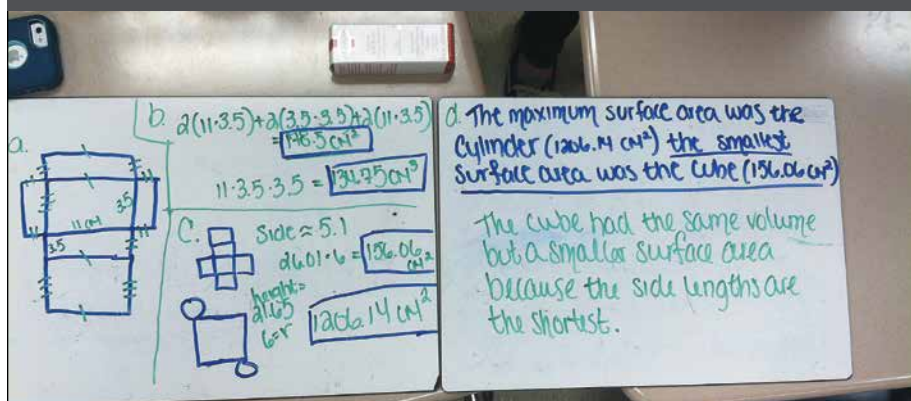 a.
11 cm
3.5
3.5
b. 2(11·3.5)+2(3.5·3.5)+2(11·3.5)
= 178.5 cm²
11·3.5·3.5 = 134.75 cm³
C. Side ≈ 5.1
26.01·6 = 156.06 cm²
height=
21.65
6=r
1206.14 cm²
d. The maximum surface area was the
cylinder (1206.14 cm²) the smallest
surface area was the cube (156.06 cm²)
The cube had the same volume
but a smaller surface area
because the side lengths are
the shortest.